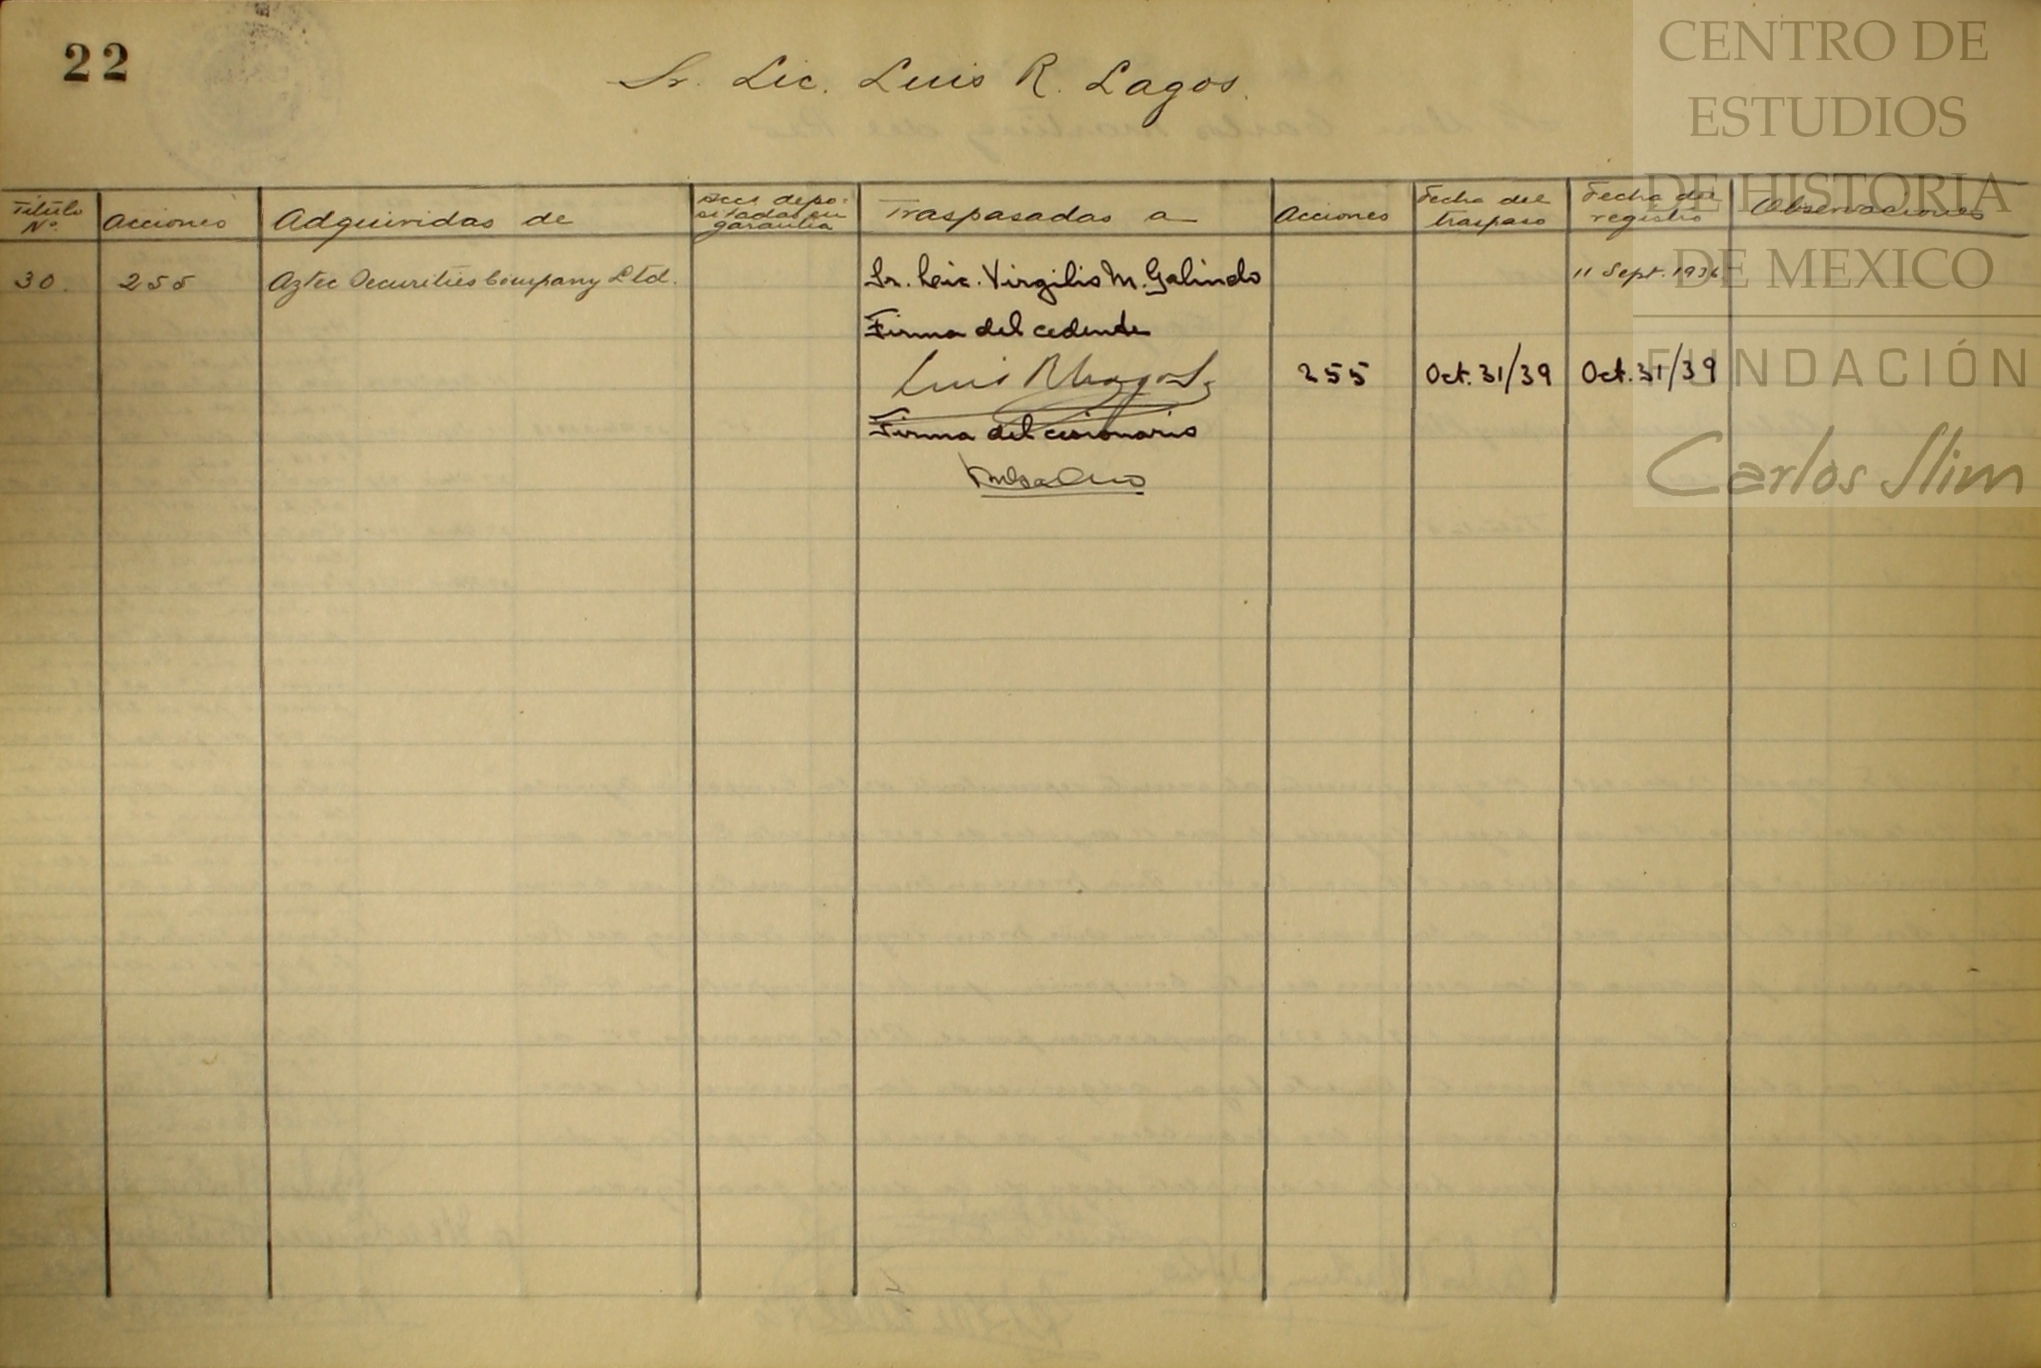 22
Sr. Lic. Luis R. Lagos.
Titulo No.
Acciones
Adquiridas de
Accs depo-
sitadas en
garantia
Traspasadas a
Acciones
Fecha del
traspaso
Fecha del
registro
Observaciones
30. 255 Aztec Securities Company Ltd. Sr. Lic. Virgilio M. Galindo 11 Sept. 1936
Firma del cedente
Luis R Lagos 255 Oct. 31/39 Oct. 31/39
Firma del cesionario
CENTRO DE
ESTUDIOS
DE HISTORIA
DE MEXICO
FUNDACIÓN
Carlos Slim